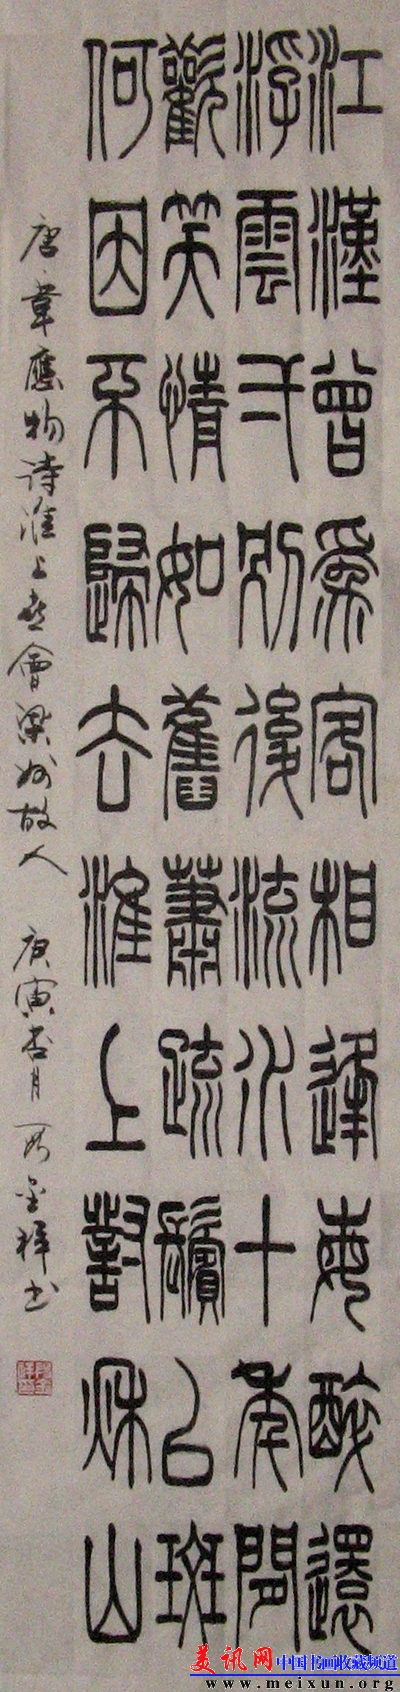 江漢曾爲客相逢每醉還
浮雲一別後流水十年間
歡笑情如舊蕭疏鬢已斑
何因不歸去淮上對秋山
唐韋應物詩淮上喜會梁州故人 庚寅杏月 金祥书
美讯网 中国书画收藏频道
www.meixun.org